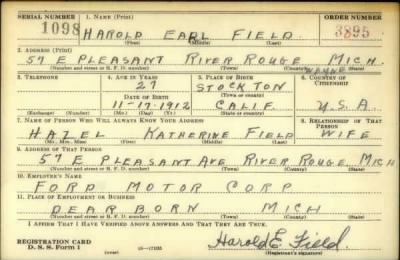 SERIAL NUMBER 1. NAME (Print) ORDER NUMBER
1098 HAROLD EARL FIELD 3895
(First) (Middle) (Last)
2. ADDRESS (Print)
57 E PLEASANT RIVER ROUGE MICH
WAYNE
(Number and street or R. F. D. number) (Town) (County) (State)
3. TELEPHONE 4. AGE IN YEARS 5. PLACE OF BIRTH 6. COUNTRY OF CITIZENSHIP
27 STOCKTON
DATE OF BIRTH (Town or county)
11-17-1912 CALIF. U.S.A
(Exchange) (Number) (Mo.) (Day) (Yr.) (State or country)
7. NAME OF PERSON WHO WILL ALWAYS KNOW YOUR ADDRESS 8. RELATIONSHIP OF THAT PERSON
HAZEL KATHERINE FIELD WIFE
(Mr., Mrs., Miss) (First) (Middle) (Last)
9. ADDRESS OF THAT PERSON
57 E PLEASANT AVE RIVER ROUGE, MICH
(Number and street or R. F. D. number) (Town) (County) (State)
10. EMPLOYER'S NAME
FORD MOTOR CORP
11. PLACE OF EMPLOYMENT OR BUSINESS
DEAR BORN MICH
(Number and street or R. F. D. number) (Town) (County) (State)
I AFFIRM THAT I HAVE VERIFIED ABOVE ANSWERS AND THAT THEY ARE TRUE.
REGISTRATION CARD
D. S. S. Form 1 (over) Harold E. Field
(Registrant's signature)